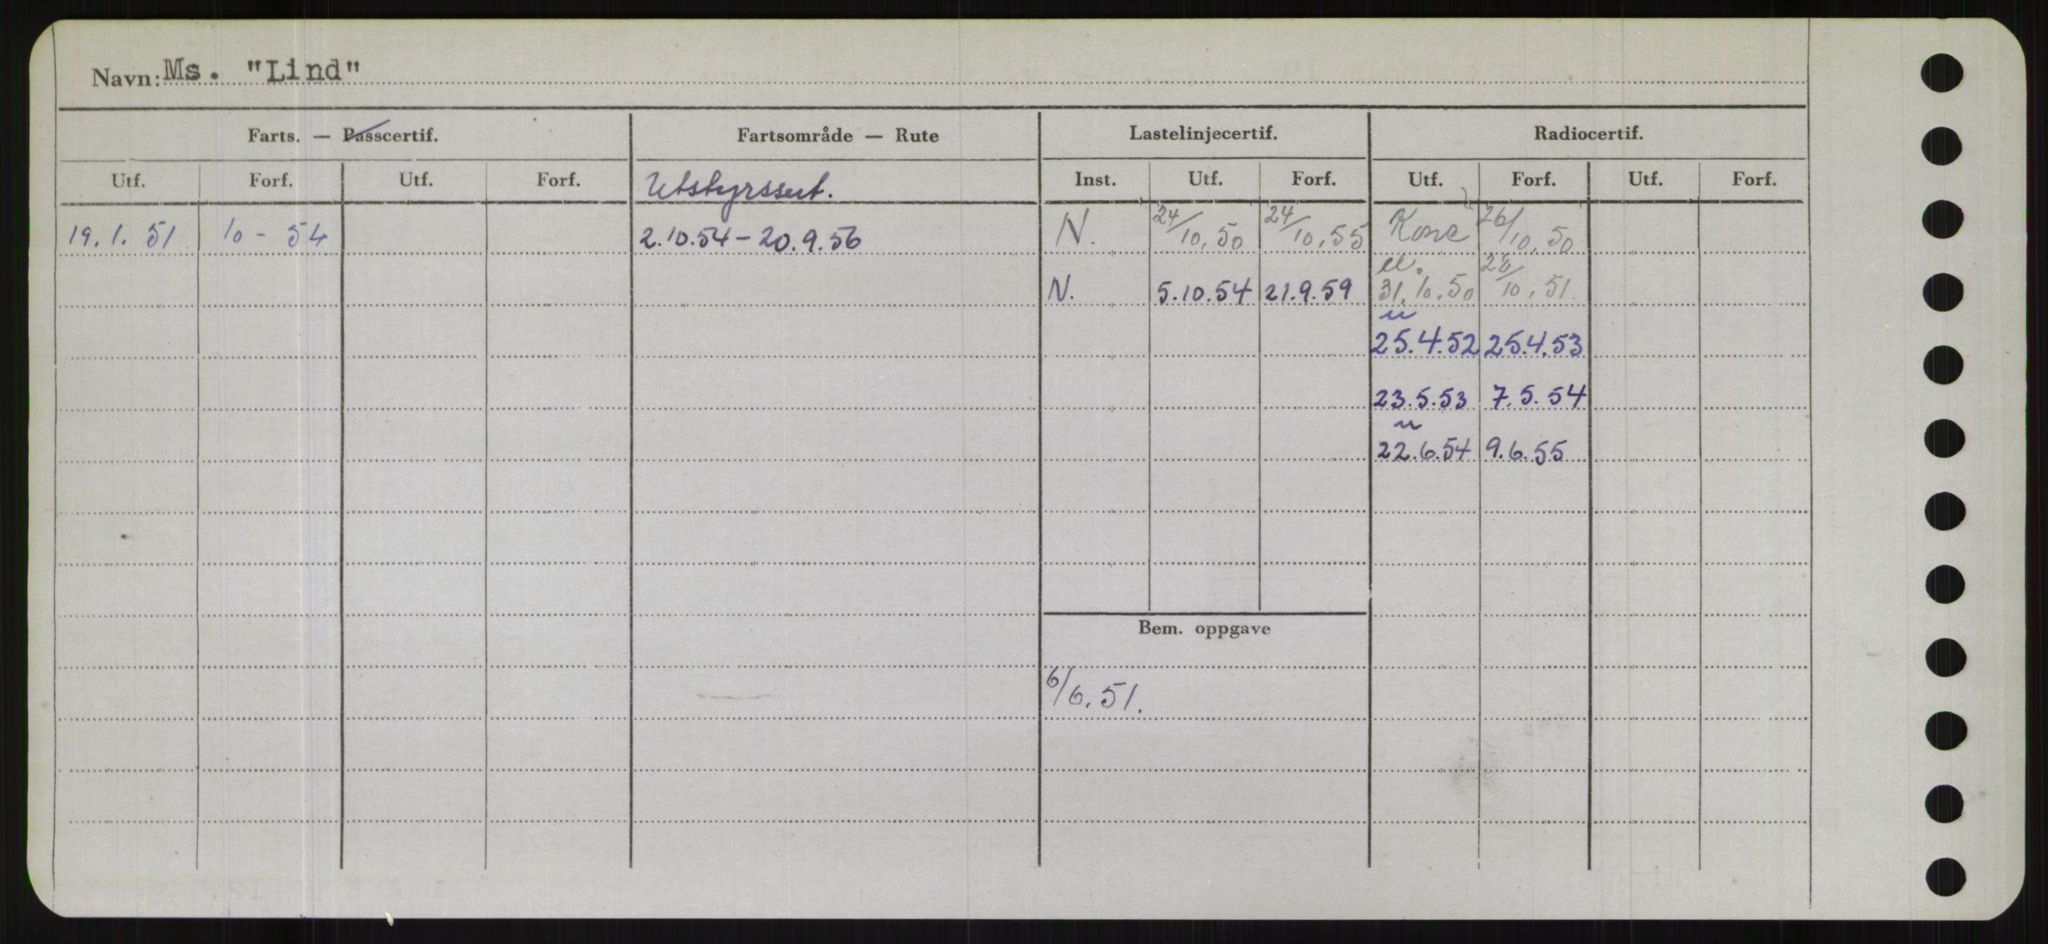 Navn: Ms. "Lind"
Farts. — Passcertif. Fartsområde — Rute Lastelinjecertif. Radiocertif.
Utf. Forf. Utf. Forf. Utstyrssert. Inst. Utf. Forf. Utf. Forf. Utf. Forf.
19.1.51 10 - 54 2.10.54 - 20.9.56 N. 24/10.50 24/10.55 Konc 26/10.50
N. 5.10.54 21.9.59 31.10.50 10.51.
25.4.52 25.4.53
23.5.53 7.5.54
22.6.54 9.6.55
Bem. oppgave
6/6.51.